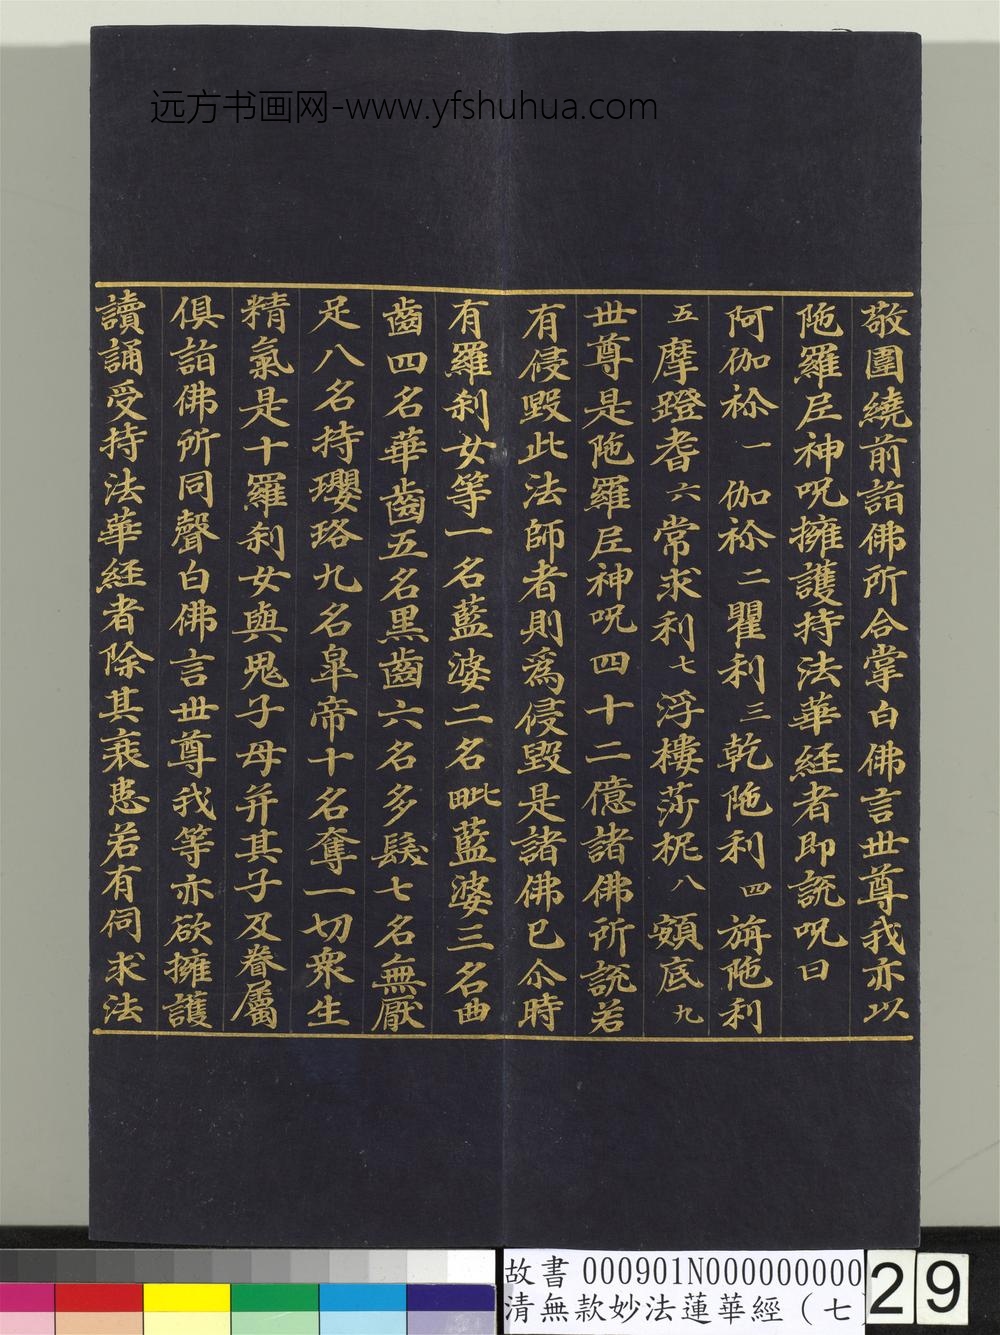 远方书画网-www.yfshuhua.com
敬圍繞前詣佛所合掌白佛言世尊我亦以
陁羅尼神呪擁護持法華経者即說呪曰
阿伽袮一伽袮二瞿利三乾陁利四旃陁利
五摩蹬耆六常求利七浮樓莎柅八頞底九
世尊是陁羅尼神呪四十二億諸佛所說若
有侵毀此法師者則爲侵毀是諸佛已尒時
有羅刹女等一名藍婆二名毗藍婆三名曲
齒四名華齒五名黑齒六名多髮七名無厭
足八名持瓔珞九名皐帝十名奪一切衆生
精氣是十羅刹女與鬼子母并其子及眷屬
俱詣佛所同聲白佛言世尊我等亦欲擁護
讀誦受持法華経者除其衰患若有伺求法
故書 000901N000000000
清無款妙法蓮華經（七）
29